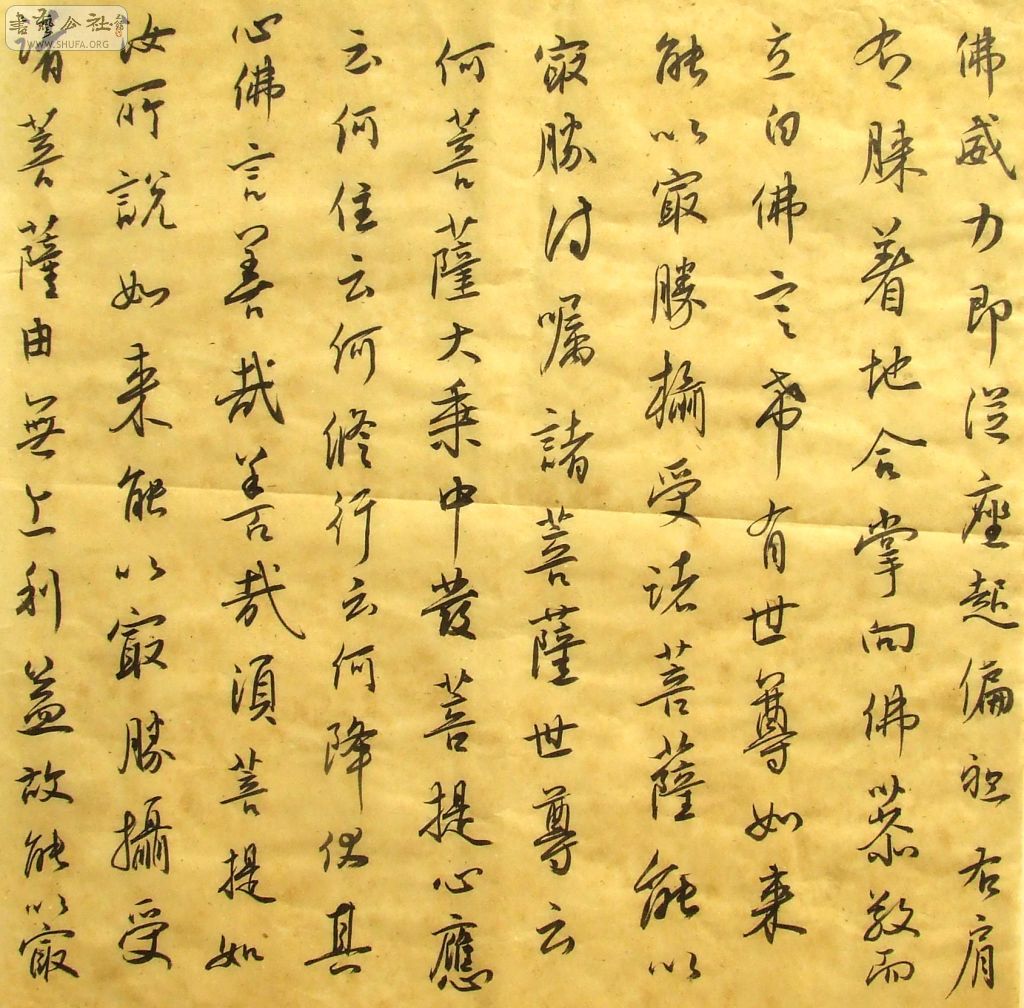 書藝公社
WWW.SHUFA.ORG
佛威力即從座起偏袒右肩
右膝着地合掌向佛恭敬而
立白佛言希有世尊如来
能以冣勝攝受諸菩薩能以
冣勝付囑諸菩薩世尊云
何菩薩大乘中發菩提心應
云何住云何修行云何降伏其
心佛言善哉善哉須菩提如
汝所說如来能以冣勝攝受
諸菩薩由無上利益故能以冣